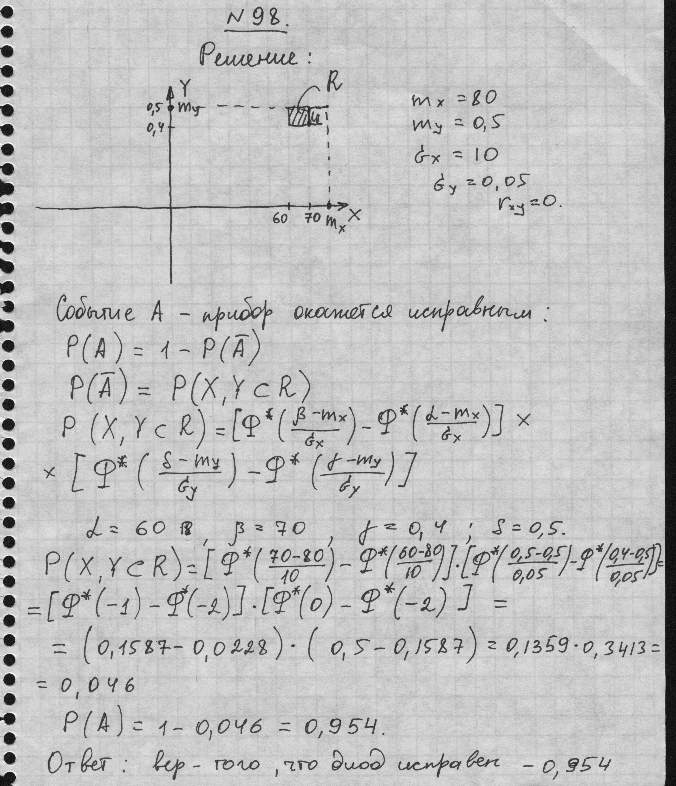 N 98.
Решение:
Y
R
0,5 my
0,4
60 70 mx X
mx = 80
my = 0,5
σx = 10
σy = 0,05
rxy = 0.
Событие А – прибор окажется исправным:
P(A) = 1 – P(Ā)
P(Ā) = P(X,Y ⊂ R)
P (X,Y ⊂ R) = [Ф*((β – mx)/σx) – Ф*((α – mx)/σx)] ×
× [Ф*((δ – my)/σy) – Ф*((γ – my)/σy)]
α = 60 , β = 70 , γ = 0,4 ; δ = 0,5.
P(X,Y ⊂ R) = [Ф*((70–80)/10) – Ф*((60–80)/10)]·[Ф*((0,5–0,5)/0,05) – Ф*((0,4–0,5)/0,05)] =
= [Ф*(–1) – Ф*(–2)]·[Ф*(0) – Ф*(–2)] =
= (0,1587 – 0,0228)·(0,5 – 0,1587) = 0,1359·0,3413 =
= 0,046
P(A) = 1 – 0,046 = 0,954.
Ответ: вер – того, что диод исправен – 0,954